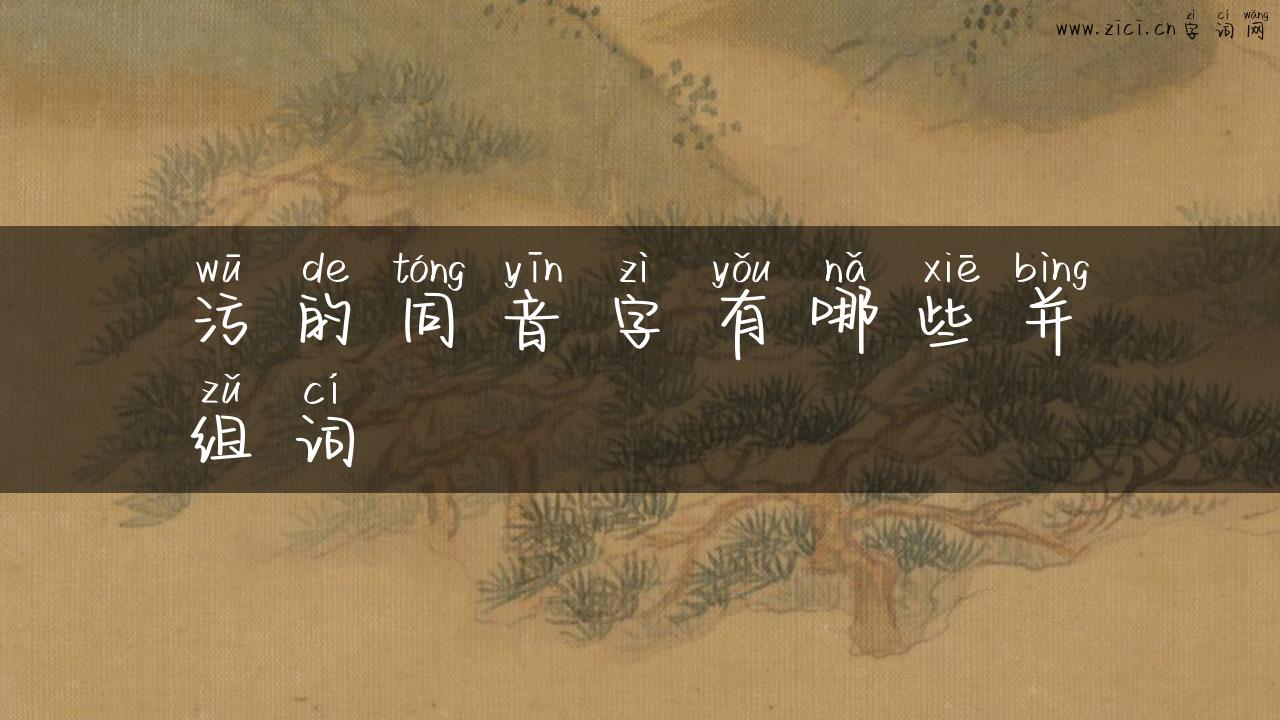 zì cí wǎng
www.zici.cn 字词网
wū de tóng yīn zì yǒu nǎ xiē bìng
污的同音字有哪些并
zǔ cí
组词